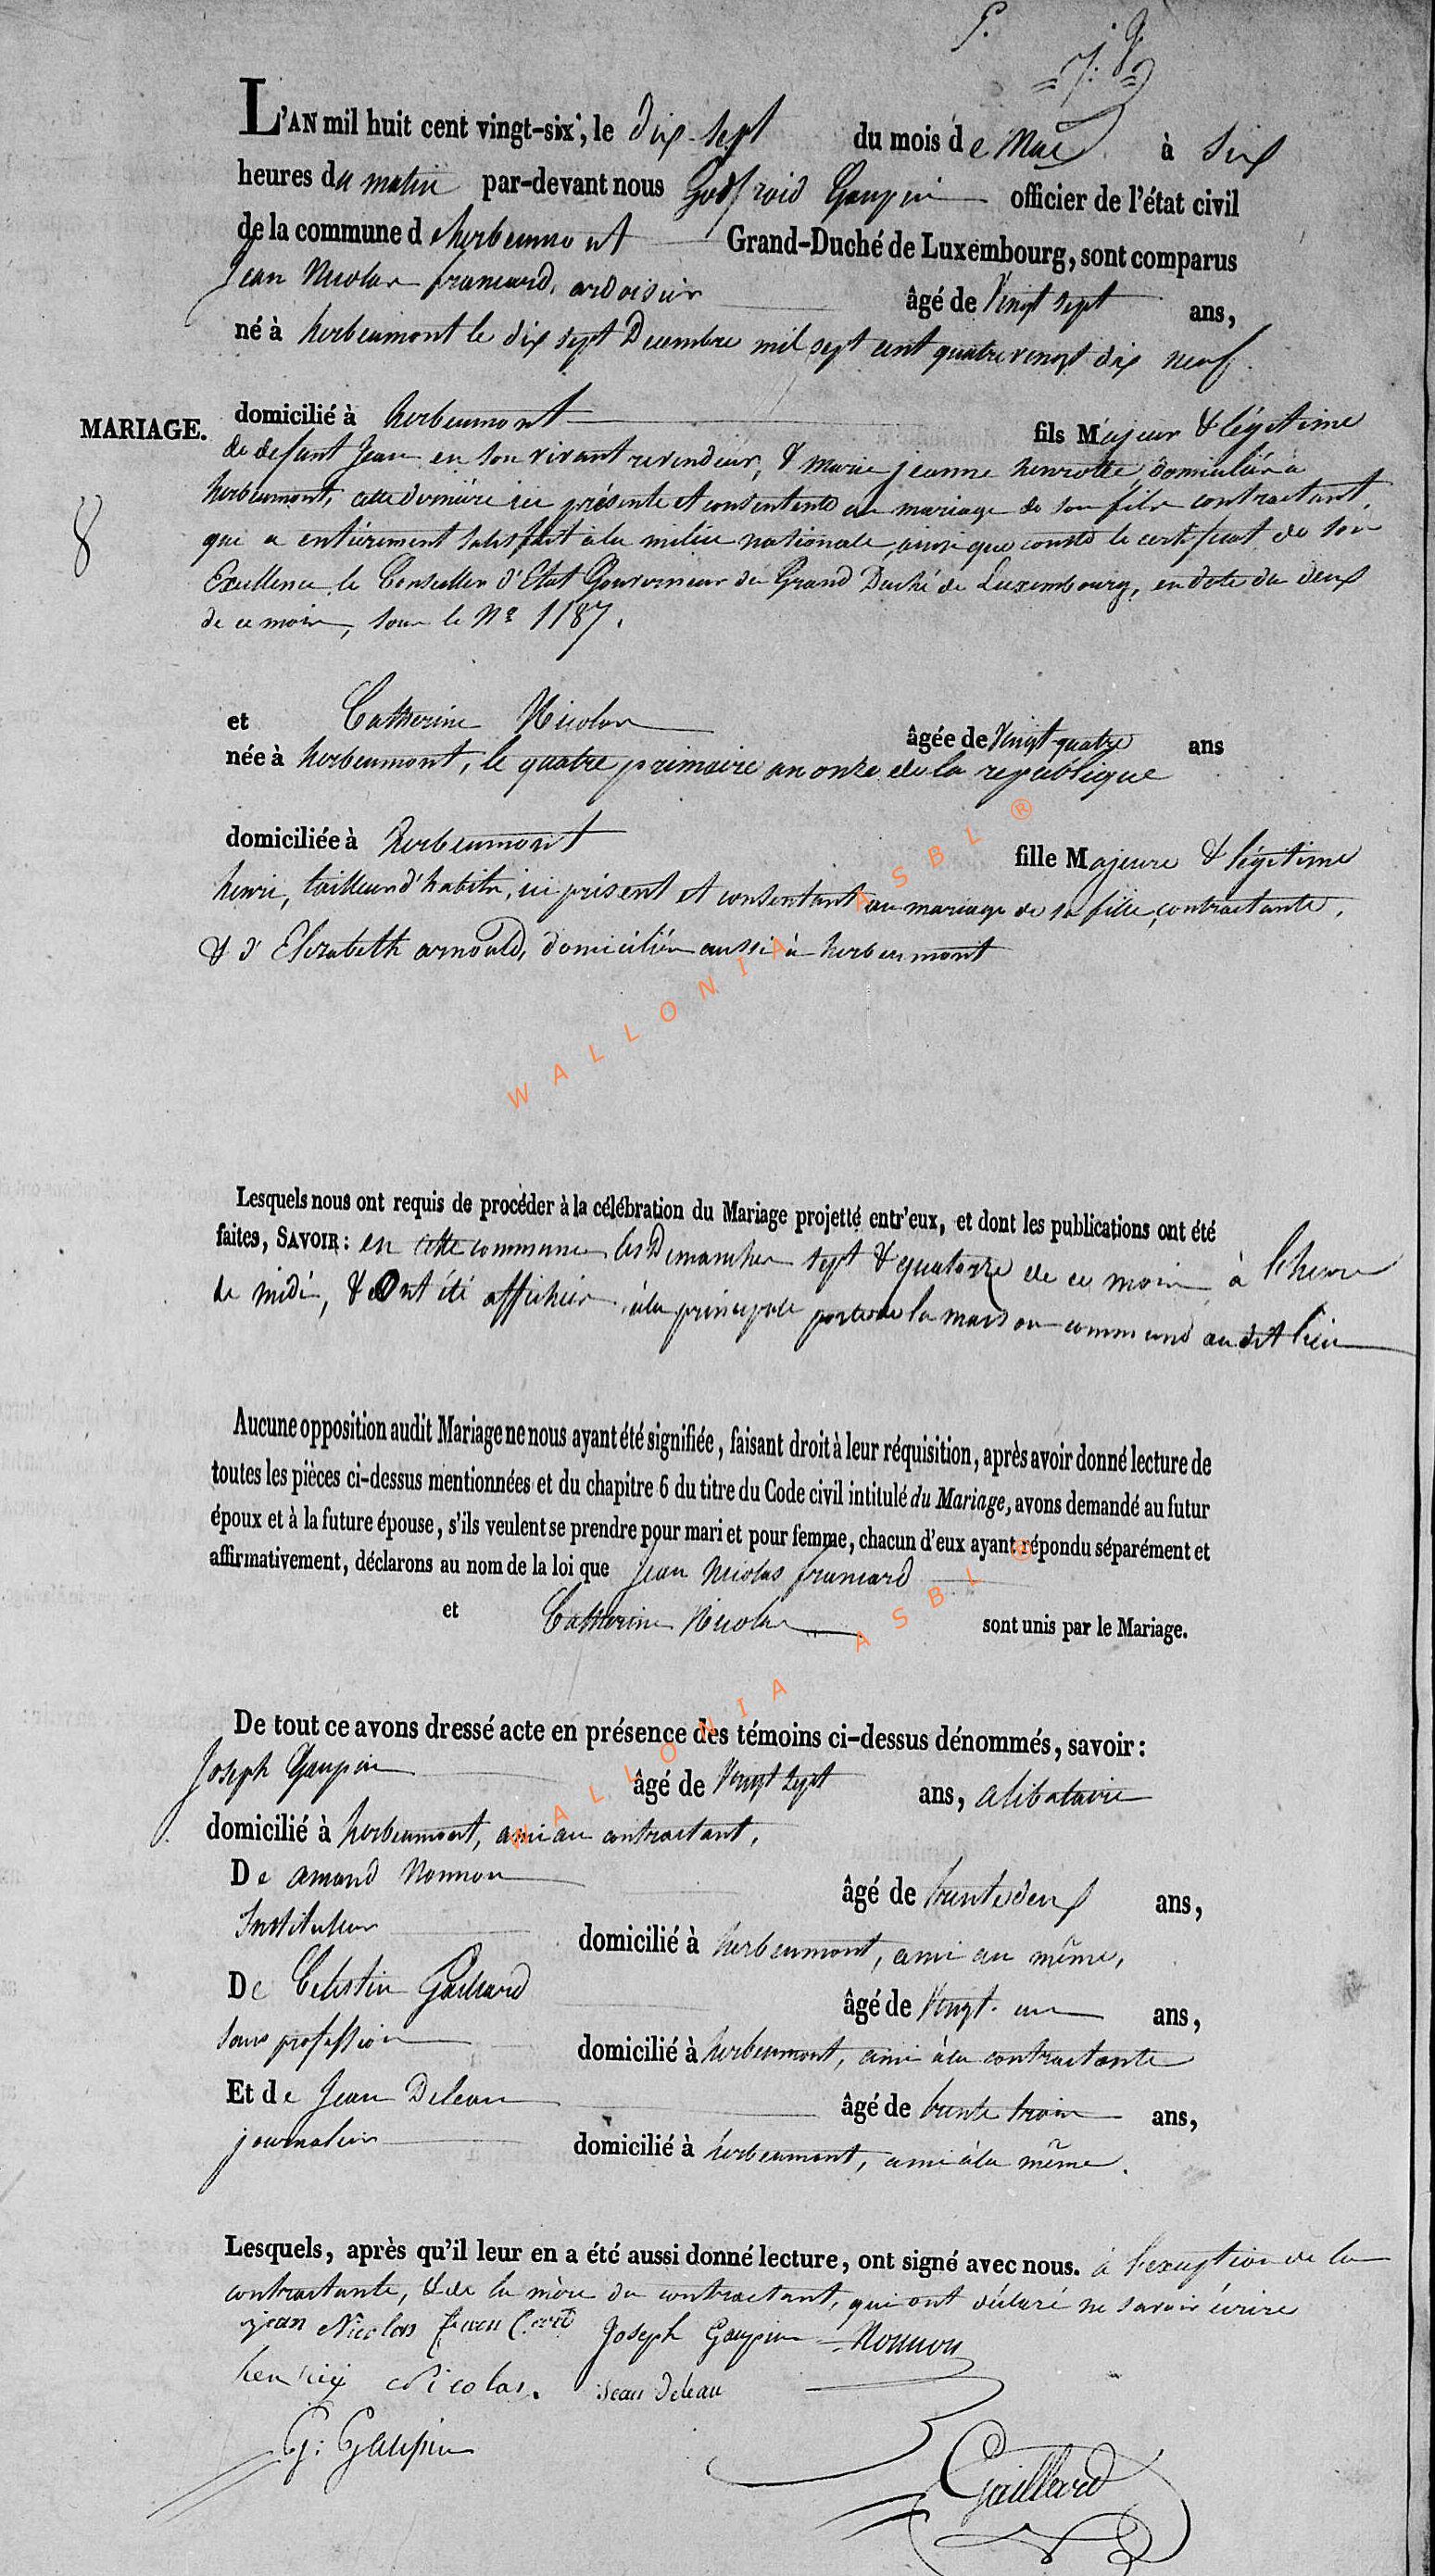 L'AN mil huit cent vingt-six, le dix-sept du mois de Mai à six
heures du matin par-devant nous Godfroid Gaupin officier de l'état civil
de la commune d herbeumont Grand-Duché de Luxembourg, sont comparus
Jean Nicolas francard, ardoisier âgé de Vingt sept ans,
né à herbeumont le dix sept Decembre mil sept cent quatre vingt dix neuf.
MARIAGE.
domicilié à herbeumont fils Majeur & légitime
de defunt Jean en son vivant revendeur, & Marie jeanne henrotte, domiciliés à
herbeumont, cette dernière ici présente et consentente au mariage de son fils contractant,
8
qui a entièrement satisfait à la milice nationale, ainsi que conste le certificat de son
Excellence le Conseiller d'Etat Gouverneur du Grand Duché de Luxembourg, en date du deux
de ce mois, sous le Nº 1187.
et Catherine Nicolas âgée de Vingt-quatre ans
née à herbeumont, le quatre primaire an onze de la republique
domiciliée à herbeumont fille Majeure & légitime
henri, tailleur d'habits, ici présent et consentant au mariage de sa fille, contractante,
& d'Elizabeth arnould, domiciliés aussi à herbeumont
WALLONIA ASBL ®
Lesquels nous ont requis de procéder à la célébration du Mariage projetté entr'eux, et dont les publications ont été
faites, SAVOIR: en cette commune les Dimanches sept & quatorze de ce mois à l'heure
de midi, & ont été affichées à la principale porte de la maison commune au dit lieu
Aucune opposition audit Mariage ne nous ayant été signifiée, faisant droit à leur réquisition, après avoir donné lecture de
toutes les pièces ci-dessus mentionnées et du chapitre 6 du titre du Code civil intitulé du Mariage, avons demandé au futur
époux et à la future épouse, s'ils veulent se prendre pour mari et pour femme, chacun d'eux ayant répondu séparément et
affirmativement, déclarons au nom de la loi que Jean Nicolas francard
et Catherine Nicolas sont unis par le Mariage.
WALLONIA ASBL ®
De tout ce avons dressé acte en présence des témoins ci-dessus dénommés, savoir:
Joseph Gaupin âgé de Vingt sept ans, celibataire
domicilié à herbeumont, ami au contractant,
De amand Nonnon âgé de trente deux ans,
Instituteur domicilié à herbeumont, ami au même,
De Celestin Gaillard âgé de Vingt-un ans,
sans profession domicilié à herbeumont, ami à la contractante
Et de Jean Deleau âgé de trente trois ans,
journalier domicilié à herbeumont, ami à la même.
Lesquels, après qu'il leur en a été aussi donné lecture, ont signé avec nous. à l'exception de la
contractante, & de la mère du contractant, qui ont déclaré ne savoir écrire
jean Nicolas Joseph Gaupin Nonnon
henrix Nicolas. Jean Deleau
G: Gaupin
Gaillard